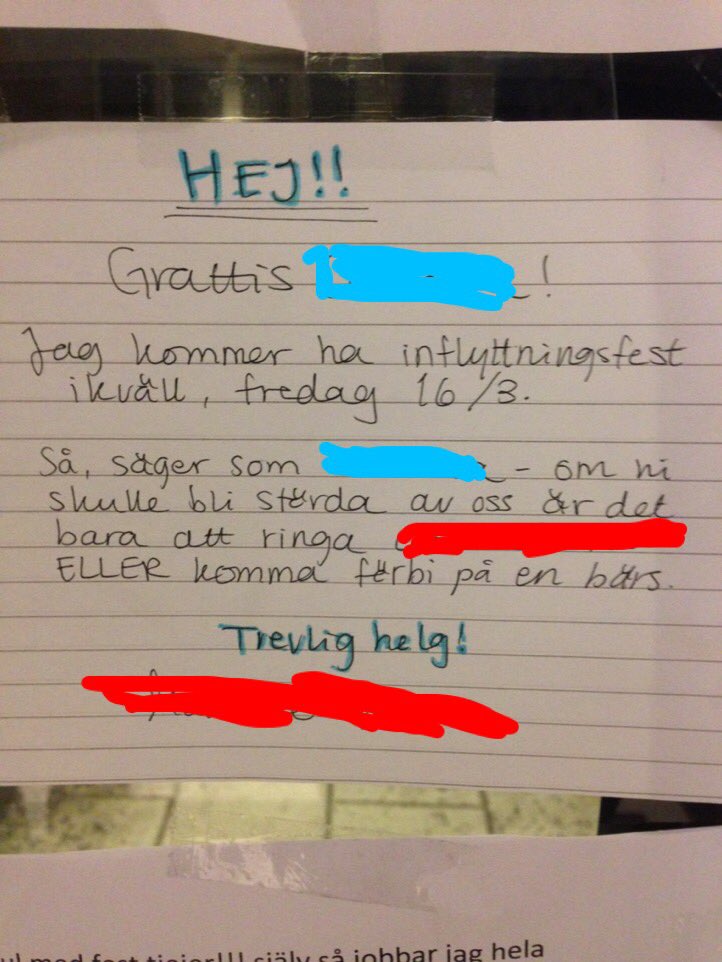 HEJ!!
Grattis !
Jag kommer ha inflyttningsfest
ikväll, fredag 16/3.
Så, säger som - om ni
skulle bli störda av oss är det
bara att ringa
ELLER komma förbi på en bärs.
Trevlig helg!
med fest tjejer!!! själv så jobbar jag hela